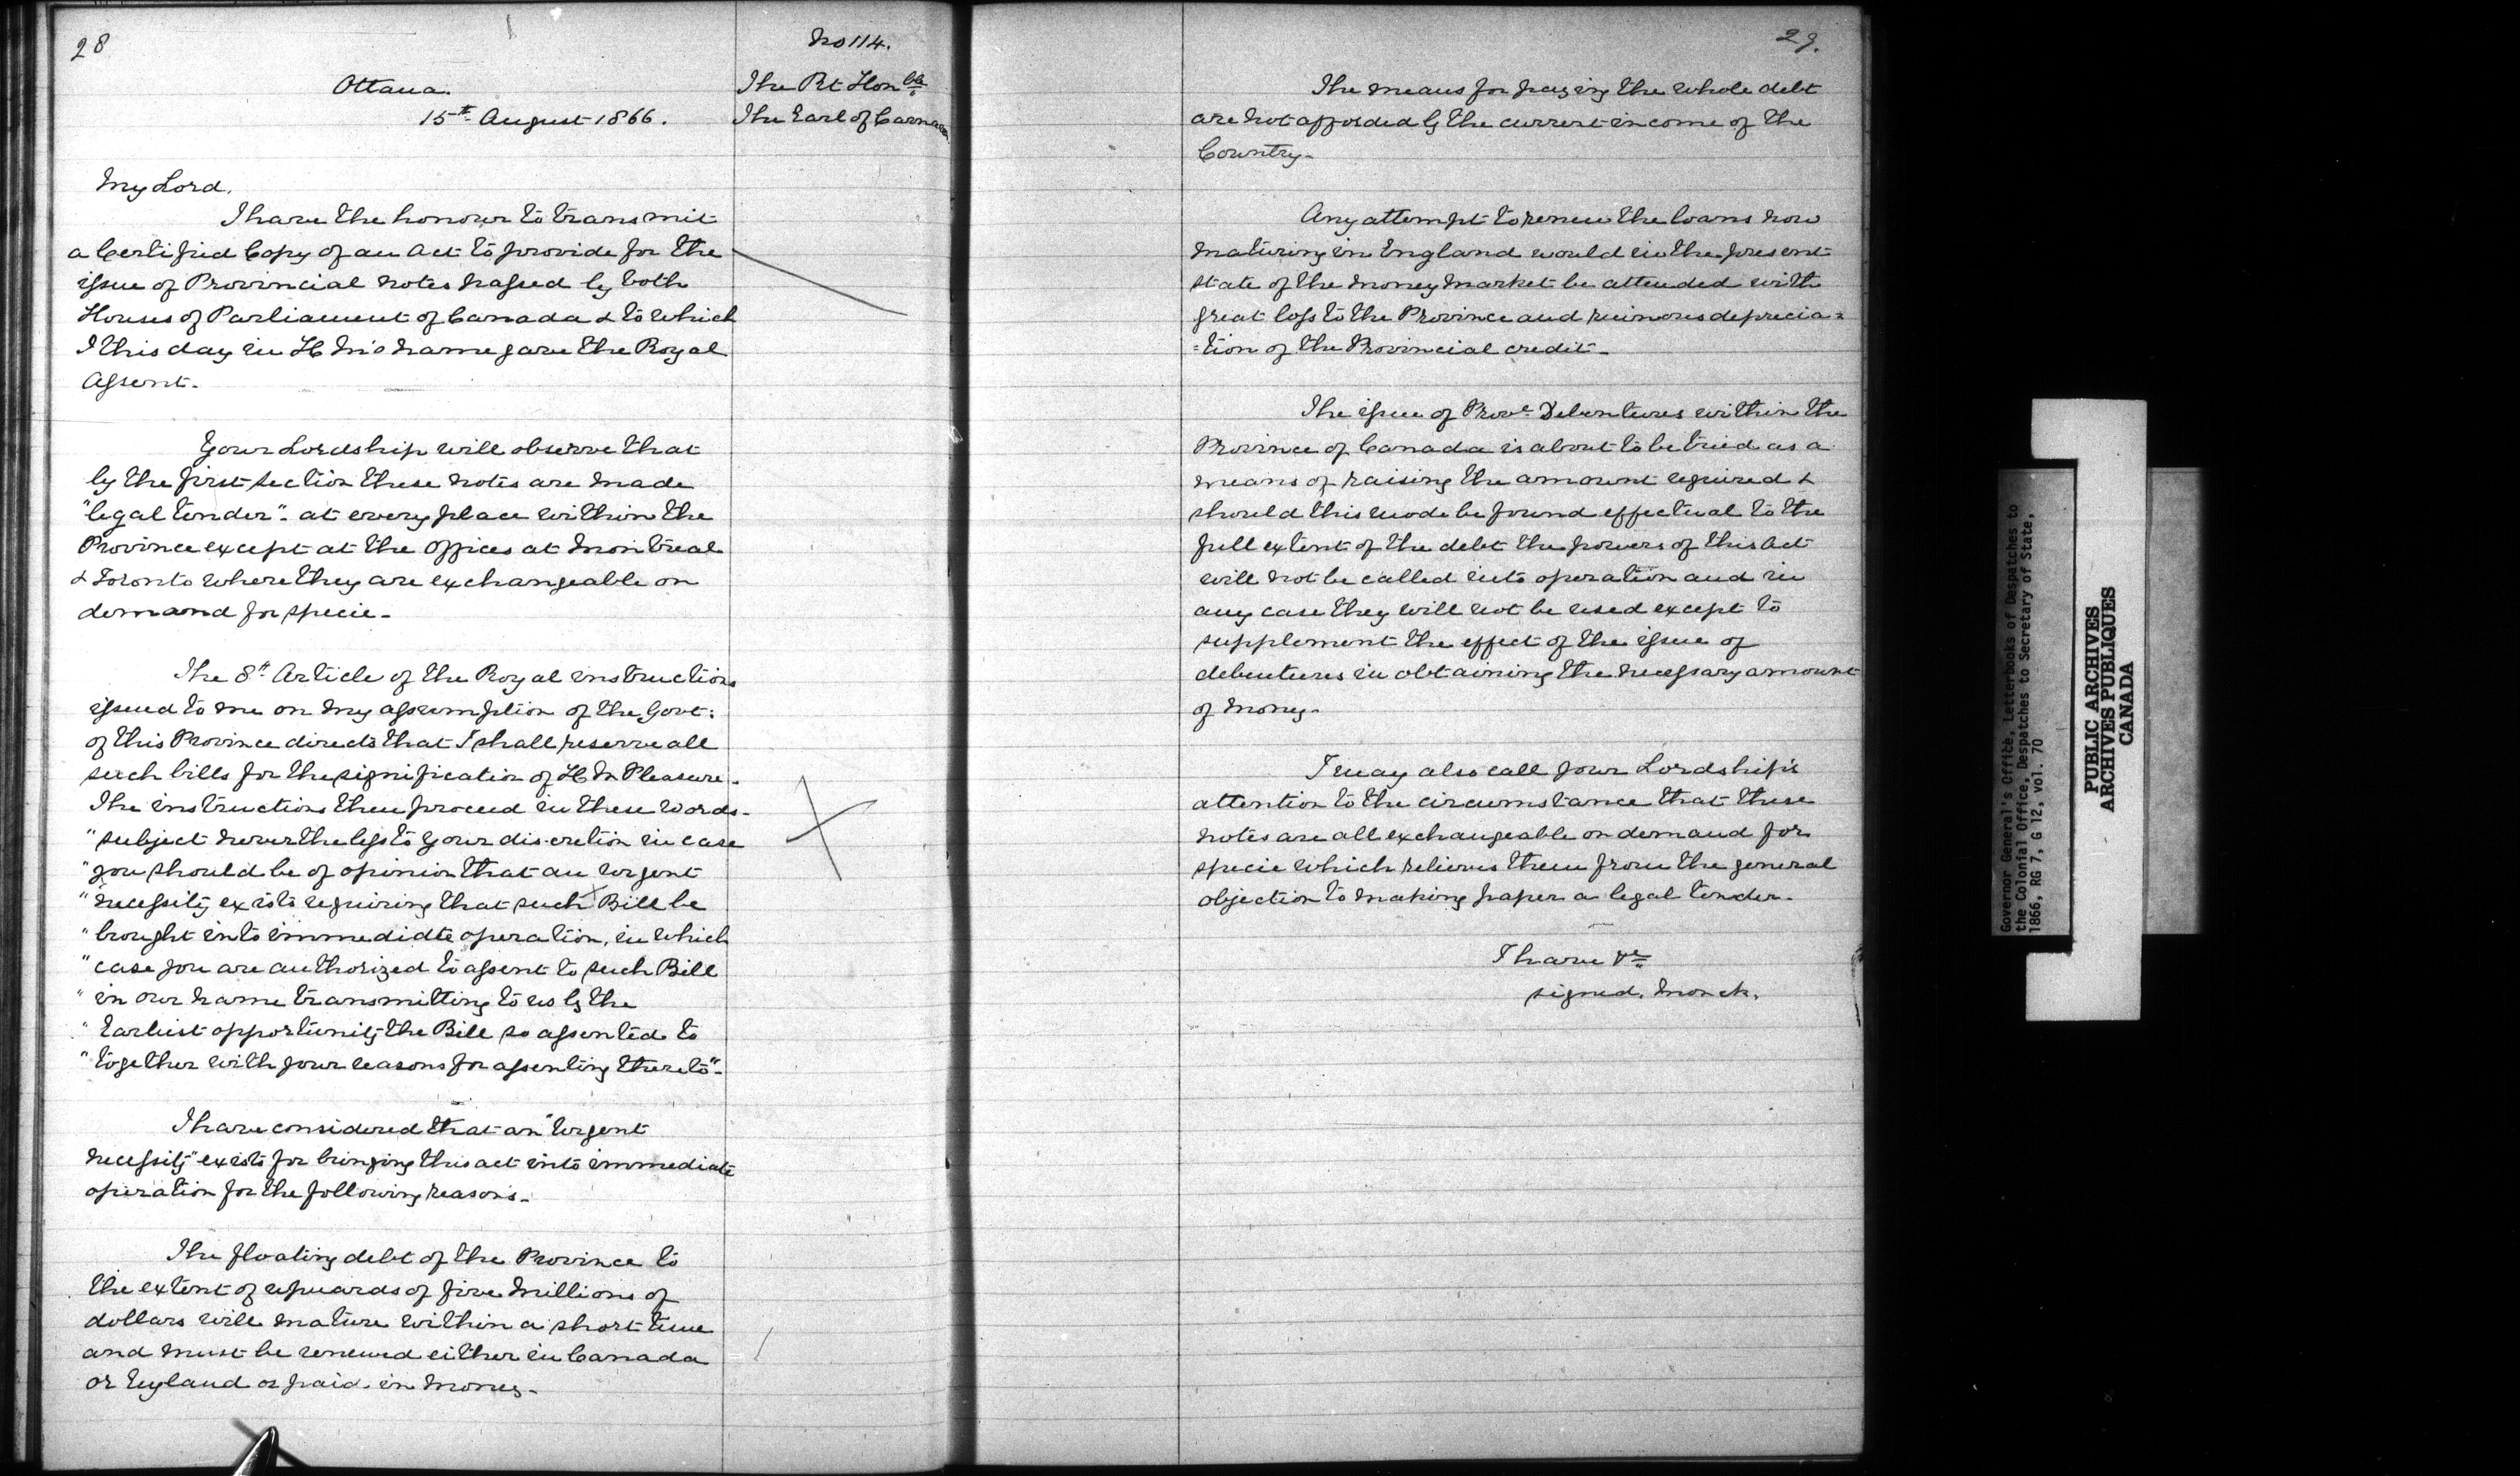 28
No 114.
Ottawa.
15th August 1866.
The Rt Honble
The Earl of Carnarvon
My Lord,
I have the honour to transmit
a Certified Copy of an Act to provide for the
issue of Provincial notes passed by both
Houses of Parliament of Canada & to which
I this day in H M's name gave the Royal
Assent.
Your Lordship will observe that
by the first section these notes are made
"legal tender" at every place within the
Province except at the offices at Montreal
& Toronto where they are exchangeable on
demand for specie.
The 8th Article of the Royal instructions
issued to me on my assumption of the Govt:
of this Province directs that I shall reserve all
such bills for the signification of H M Pleasure.
The instructions then proceed in these words.
"subject nevertheless to your discretion in case
"you should be of opinion that an urgent
"necessity exists requiring that such Bill be
"brought into immediate operation, in which
"case you are authorized to assent to such Bill
"in our name transmitting to us by the
"Earliest opportunity the Bill so assented to
"together with your reasons for assenting thereto".
I have considered that an "urgent
necessity" exists for bringing this act into immediate
operation for the following reasons.
The floating debt of the Province to
the extent of upwards of five millions of
dollars will mature within a short time
and must be renewed either in Canada
or England or paid in money.
29.
The means for paying the whole debt
are not afforded by the current income of the
Country.
Any attempt to renew the loans now
maturing in England would in the present
state of the money market be attended with
great loss to the Province and ruinous deprecia=
=tion of the Provincial credit.
The issue of Provl Debentures within the
Province of Canada is about to be tried as a
means of raising the amount required &
should this mode be found effectual to the
full extent of the debt the powers of this Act
will not be called into operation and in
any case they will not be used except to
supplement the effect of the issue of
debentures in obtaining the necessary amount
of money.
I may also call your Lordship's
attention to the circumstance that these
notes are all exchangeable on demand for
specie which relieves them from the general
objection to making paper a legal tender.
I have &c
signed, Monck.
Governor General's Office, Letterbooks of Despatches to
the Colonial Office, Despatches to Secretary of State,
1866, RG 7, G 12, vol. 70
PUBLIC ARCHIVES
ARCHIVES PUBLIQUES
CANADA